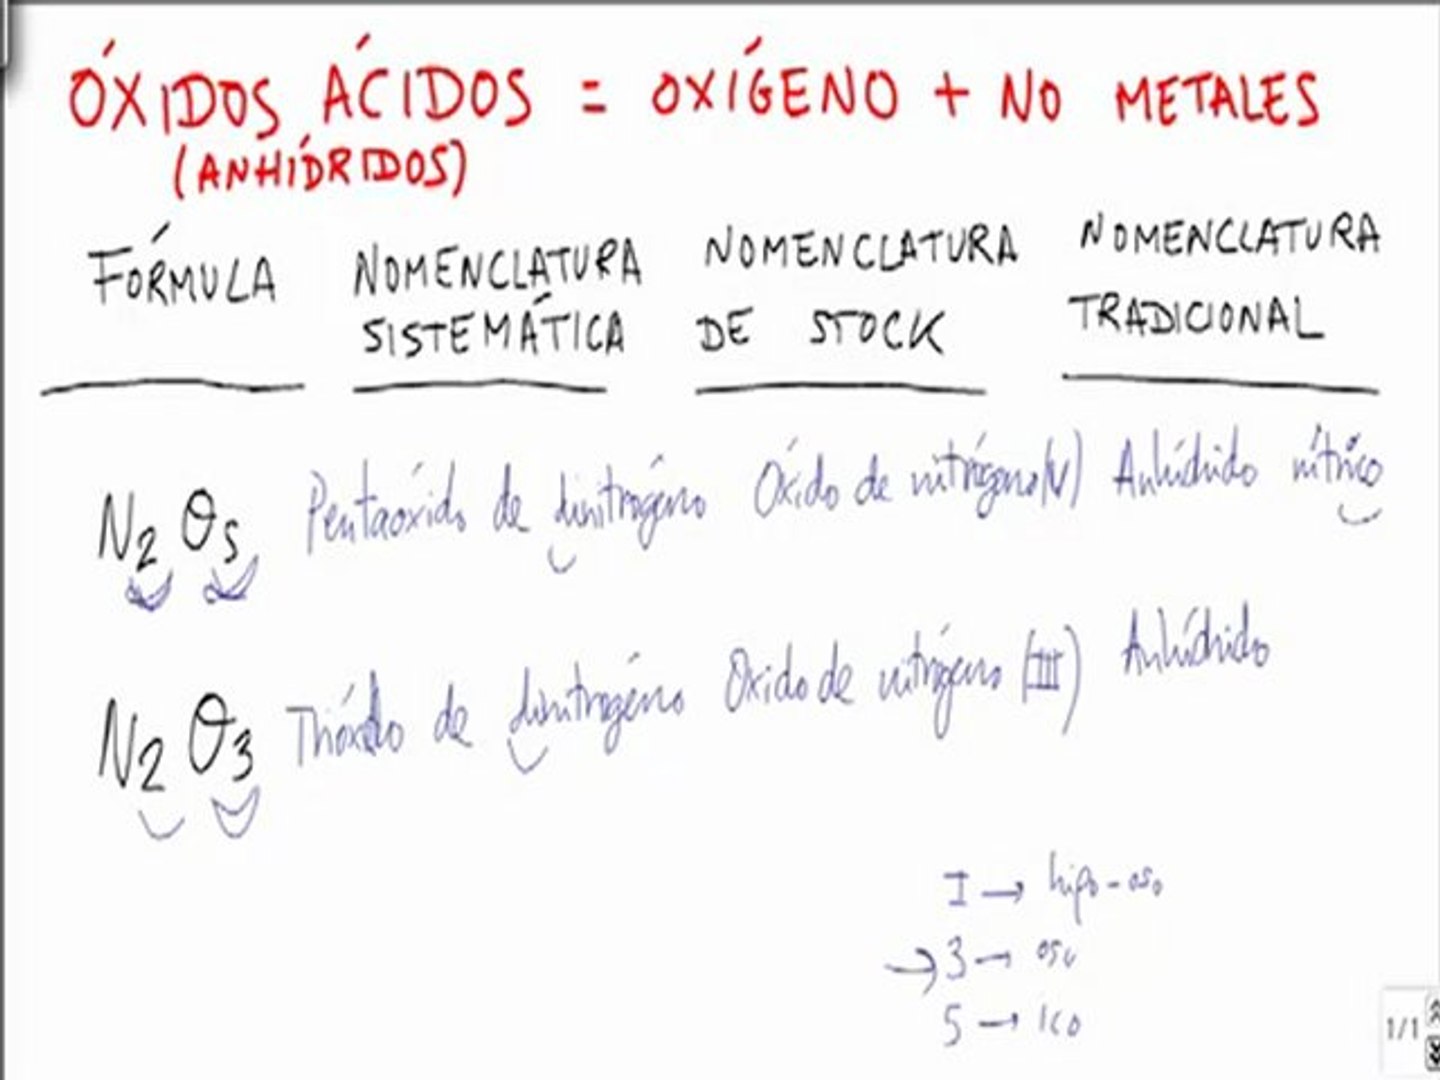 ÓXIDOS ÁCIDOS = OXÍGENO + NO METALES
(ANHÍDRIDOS)
FÓRMULA NOMENCLATURA SISTEMÁTICA NOMENCLATURA DE STOCK NOMENCLATURA TRADICIONAL
N2O5 Pentaóxido de dinitrógeno Óxido de nitrógeno (V) Anhídrido nítrico
N2O3 Trióxido de dinitrógeno Óxido de nitrógeno (III) Anhídrido
I → hipo-oso
→ 3 → oso
5 → ico
1/1